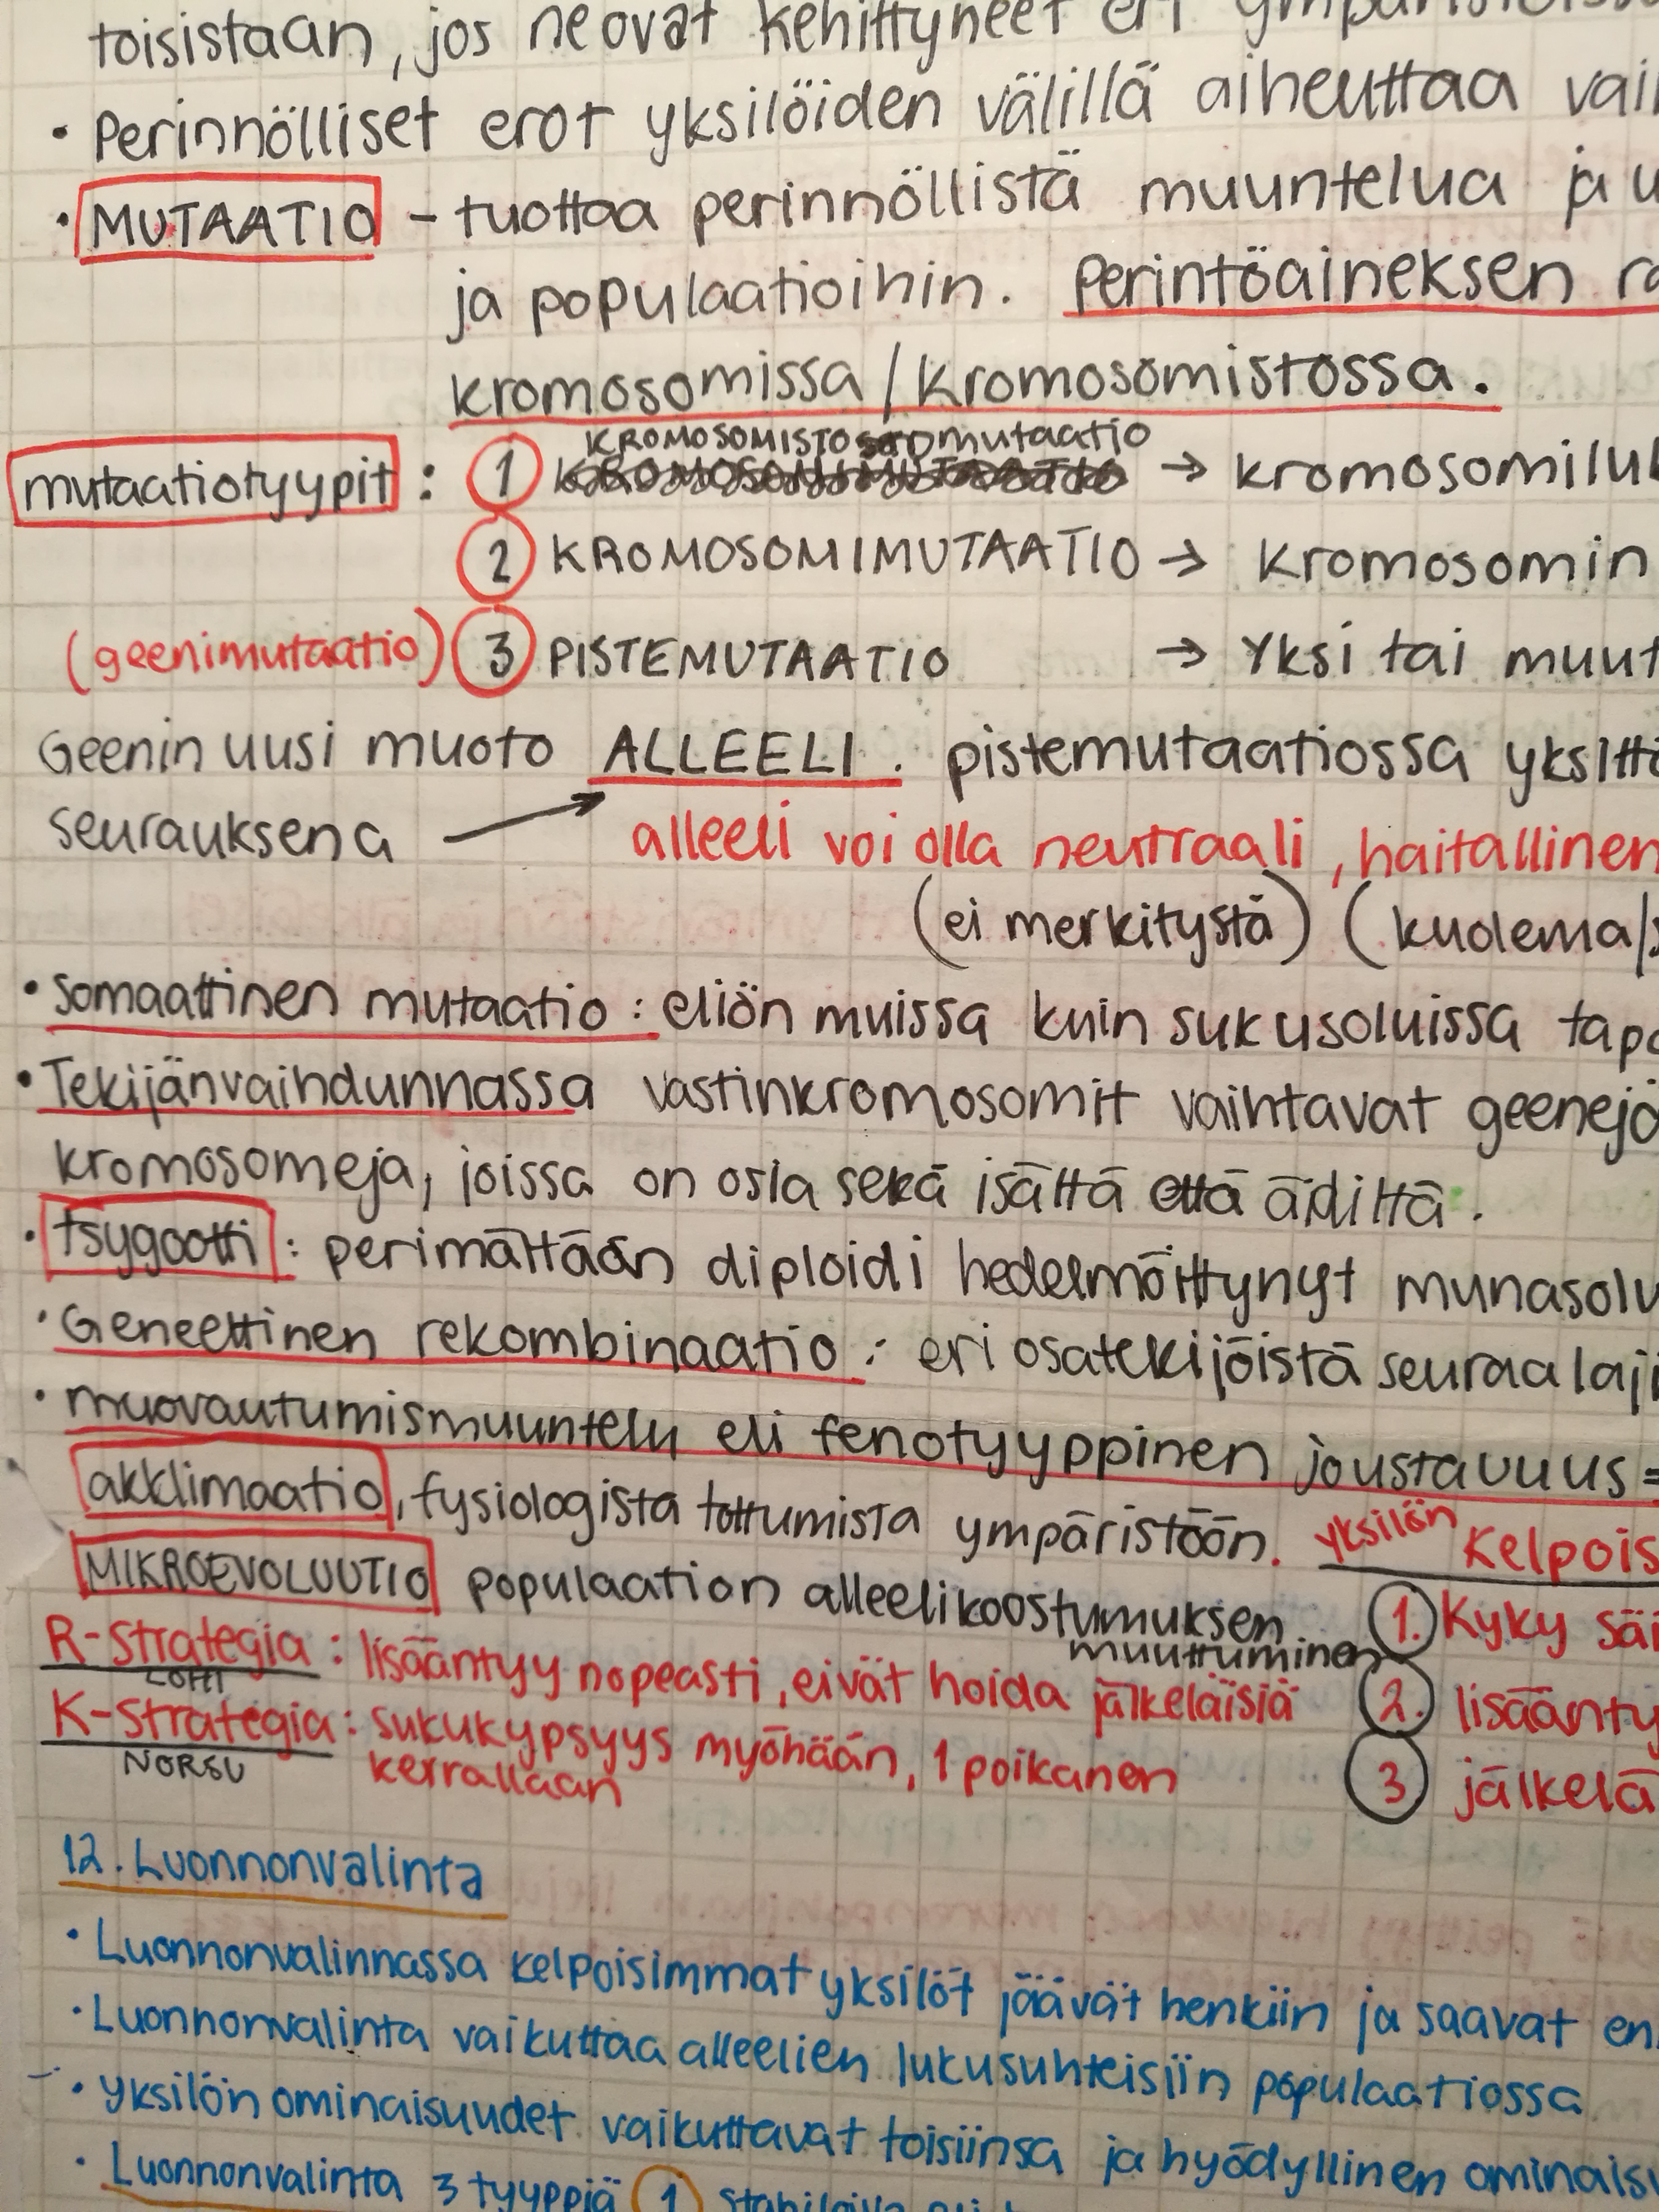 toisistaan, jos ne ovat kehittyneet eri
• Perinnölliset erot yksilöiden välillä aiheuttaa
• MUTAATIO – tuottaa perinnöllistä muuntelua ja
ja populaatioihin. Perintöaineksen
kromosomissa/kromosomistossa.
KROMOSOMISTOmutaatio
mutaatiotyypit : 1 KROMOSOMIMUTAATIO → kromosomilu
2 KROMOSOMIMUTAATIO → Kromosomin
(geenimutaatio) 3 PISTEMUTAATIO → Yksi tai muut
Geenin uusi muoto ALLEELI. pistemutaatiossa
seurauksena → alleeli voi olla neutraali, haitallinen
(ei merkitystä) (kuolema/
• Somaattinen mutaatio : eliön muissa kuin sukusoluissa tapa
• Tekijänvaihdunnassa vastinkromosomit vaihtavat geenejä
kromosomeja, joissa on osia sekä isältä että äidiltä.
• tsygootti : perimältään diploidi hedelmöittynyt munasolu
• Geneettinen rekombinaatio : eri osatekijöistä seuraa laji
• muovautumismuuntelu eli fenotyyppinen joustavuus =
akklimaatio, fysiologista tottumista ympäristöön. yksilön Kelpois
MIKROEVOLUUTIO populaation alleelikoostumuksen 1. Kyky säi
muuttuminen
R-strategia : lisääntyy nopeasti, eivät hoida jälkeläisiä 2. lisäänty
LOHI
K-strategia : sukukypsyys myöhään, 1 poikanen 3 jälkelä
NORSU kerrallaan
12. Luonnonvalinta
• Luonnonvalinnassa kelpoisimmat yksilöt jäävät henkiin ja saavat en
• Luonnonvalinta vaikuttaa alleelien lukusuhteisiin populaatiossa
• yksilön ominaisuudet vaikuttavat toisiinsa ja hyödyllinen ominaisu
• Luonnonvalinta 3 tyyppiä 1